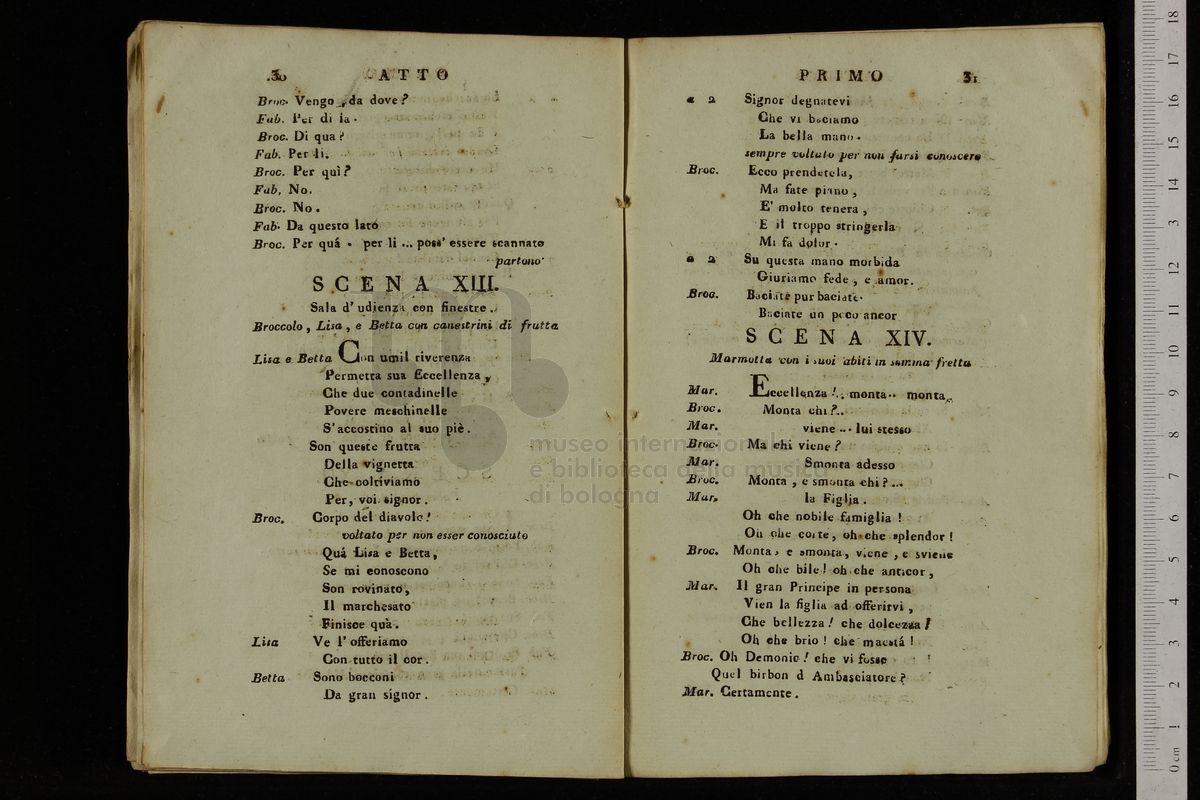 30 ATTO
Broc. Vengo, da dove?
Fab. Per di la.
Broc. Di qua?
Fab. Per li.
Broc. Per quì?
Fab. No.
Broc. No.
Fab. Da questo lato
Broc. Per quá. per li ... poss' essere scannato
partono
SCENA XIII.
Sala d' udienza con finestre.
Broccolo, Lisa, e Betta con canestrini di frutta
Lisa e Betta Con umil riverenza
Permetta sua Eccellenza,
Che due contadinelle
Povere meschinelle
S' accostino al suo piè.
Son queste frutta
Della vignetta
Che coltiviamo
Per, voi signor.
Broc. Corpo del diavolo!
voltato per non esser conosciuto
Quá Lisa e Betta,
Se mi conoscono
Son rovinato,
Il marchesato
Finisce quà.
Lisa Ve l' offeriamo
Con tutto il cor.
Betta Sono bocconi
Da gran signor.
PRIMO 31
a 2 Signor degnatevi
Che vi baciamo
La bella mano.
sempre voltato per non farsi conoscere
Broc. Ecco prendetela,
Ma fate piano,
E' molto tenera,
E il troppo stringerla
Mi fa dolor.
a 2 Su questa mano morbida
Giuriamo fede, e amor.
Broc. Baciate pur baciate.
Baciate un poco ancor
SCENA XIV.
Marmotta con i suoi abiti in summa fretta
Mar. Eccellenza!.. monta.. monta..
Broc. Monta chi?..
Mar. viene ... lui stesso
Broc. Ma chi viene?
Mar. Smonta adesso
Broc. Monta, e smonta chi?...
Mar. la Figlia.
Oh che nobile famiglia!
Oh che corte, oh che splendor!
Broc. Monta, e smonta, viene, e sviene
Oh che bile! oh che anticor,
Mar. Il gran Principe in persona
Vien la figlia ad offerirvi,
Che bellezza! che dolcezza!
Oh che brio! che maestá!
Broc. Oh Demonio! che vi fosse
Quel birbon d Ambasciatore?
Mar. Certamente.
museo internazionale
e biblioteca della musica
di bologna
0 cm 1 2 3 4 5 6 7 8 9 10 11 12 13 14 15 16 17 18